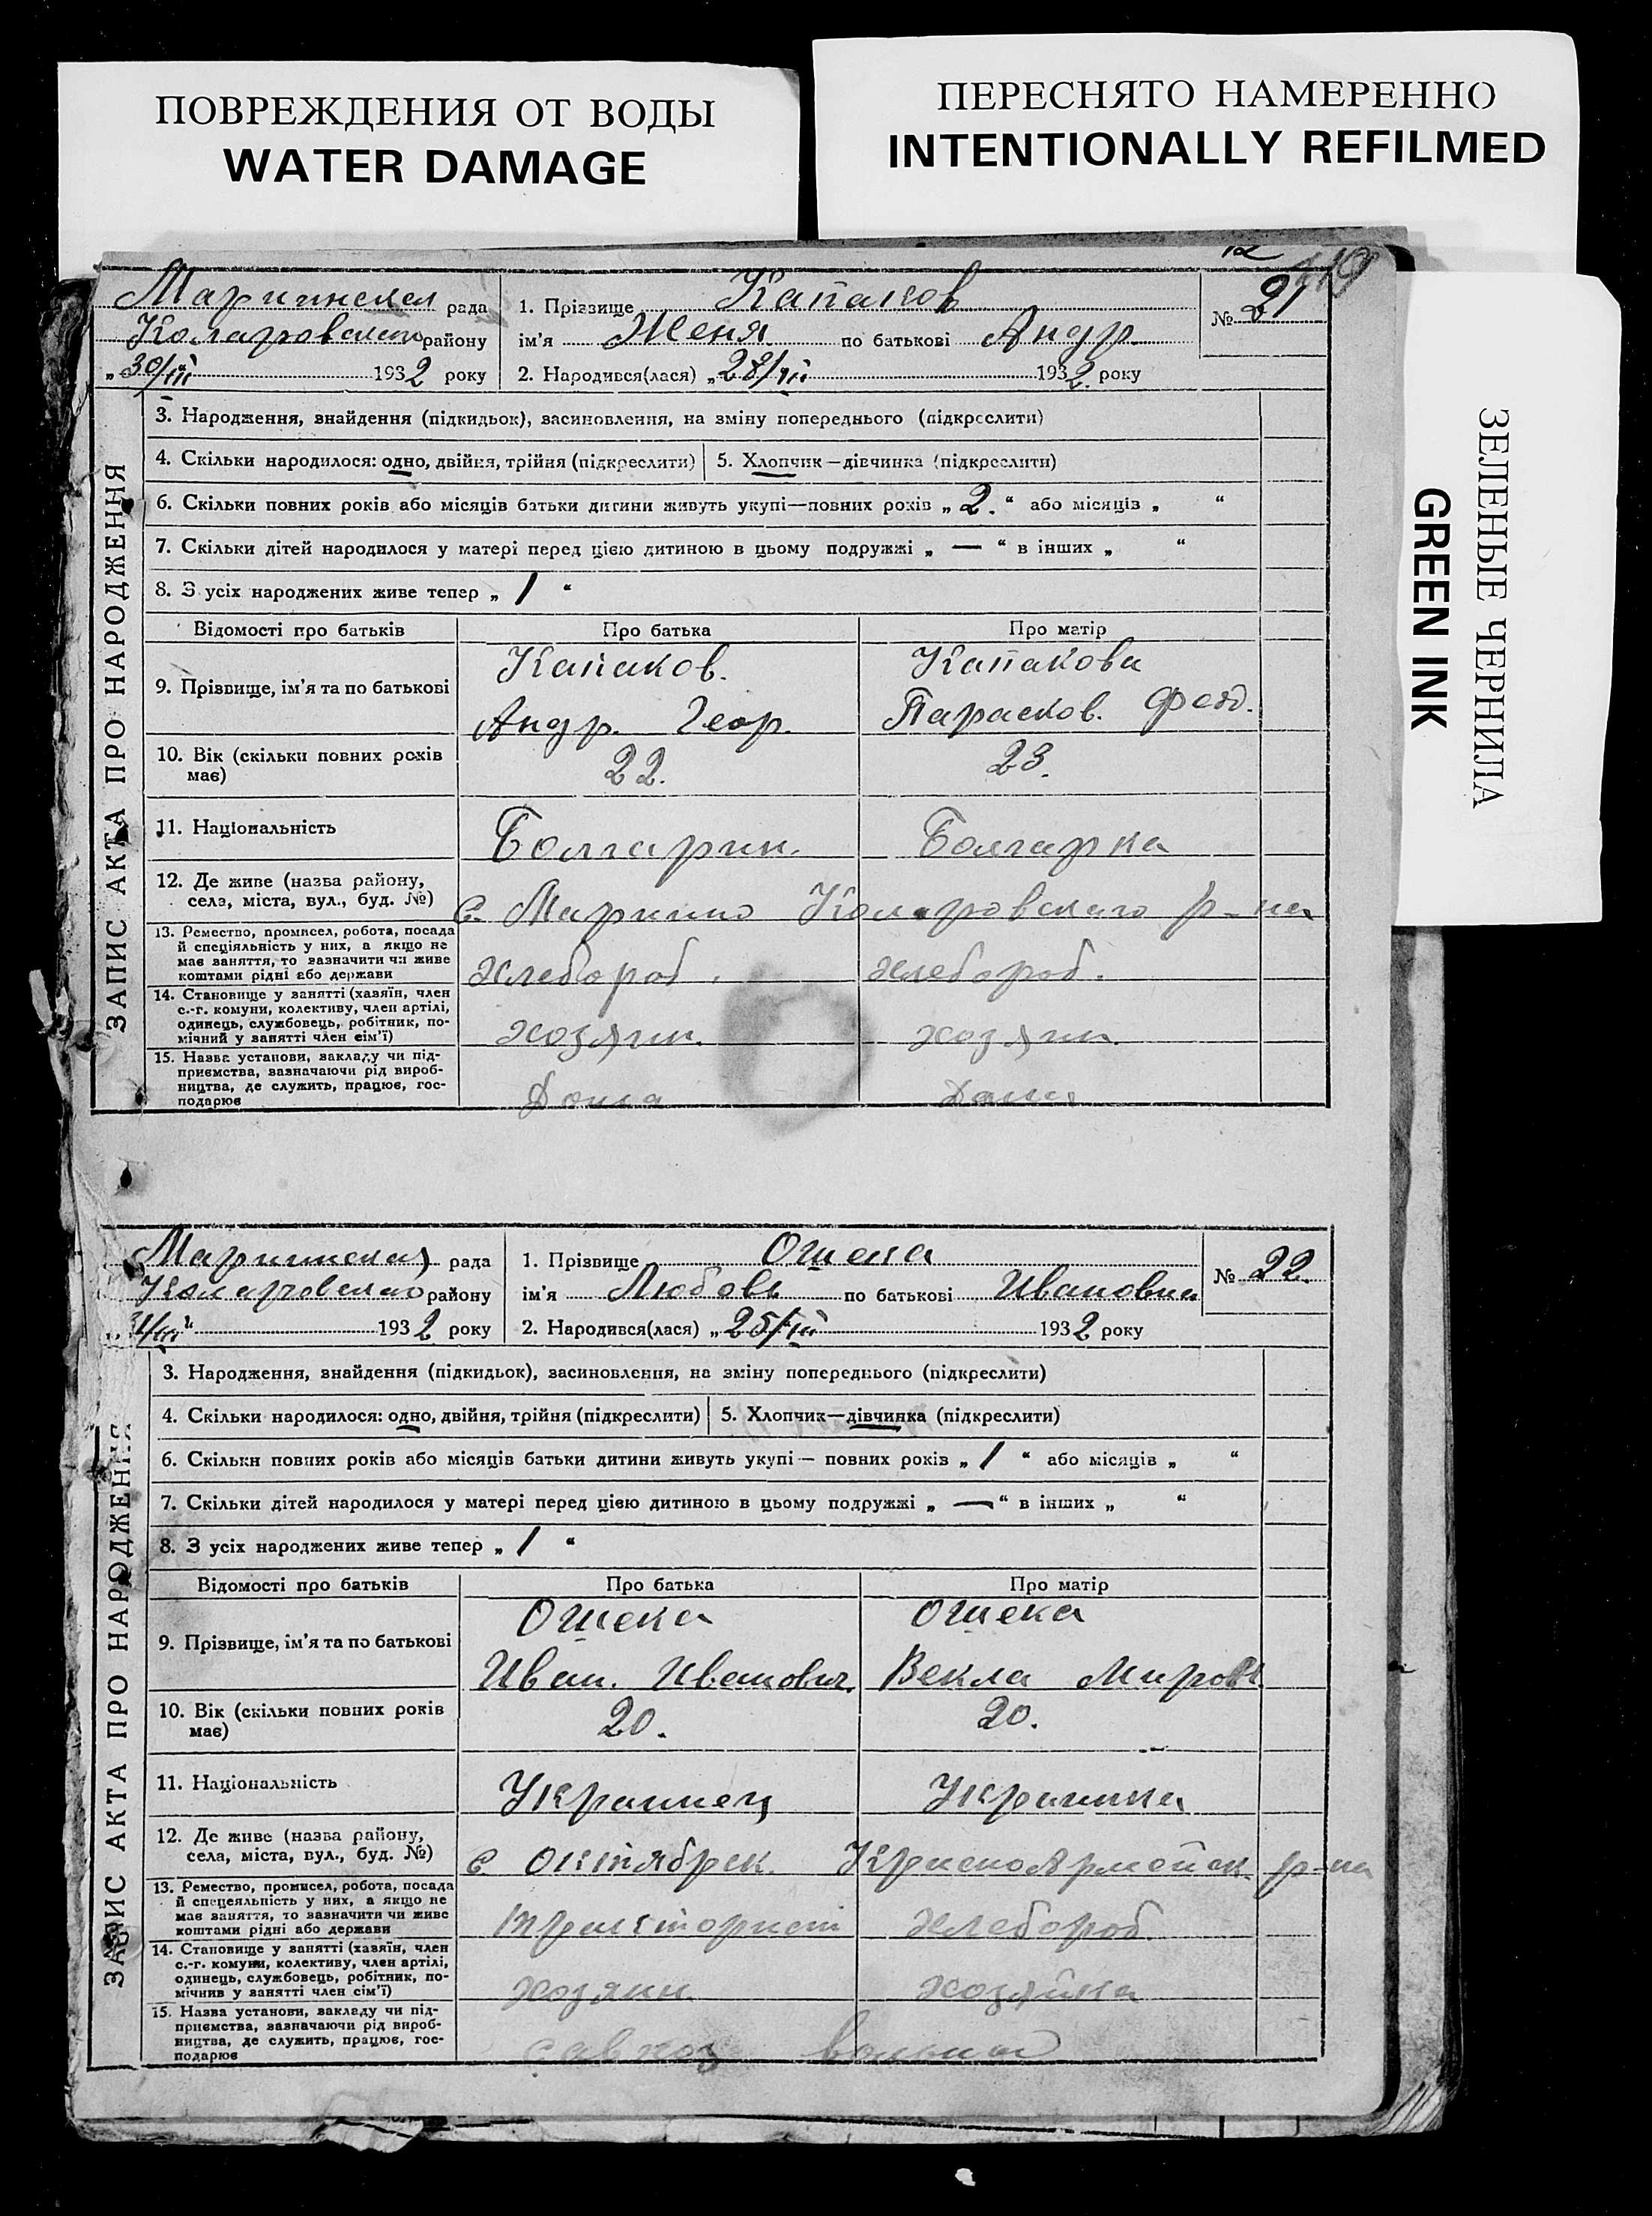 ПОВРЕЖДЕНИЯ ОТ ВОДЫ
WATER DAMAGE
ПЕРЕСНЯТО НАМЕРЕННО
INTENTIONALLY REFILMED
ЗЕЛЕНЫЕ ЧЕРНИЛА
GREEN INK
12
ЗАПИС АКТА ПРО НАРОДЖЕННЯ
Мариинская рада
Коларовского району
„30/III 1932 року
1. Прізвище Капаков
ім'я Женя по батькові Андр.
2. Народився(лася) „28/III 1932 року
№ 21
3. Народження, знайдення (підкидьок), засиновлення, на зміну попереднього (підкреслити)
4. Скільки народилося: одно, двійня, трійня (підкреслити) 5. Хлопчик—дівчинка (підкреслити)
6. Скільки повних років або місяців батьки дитини живуть укупі—повних років „2.“ або місяців „ “
7. Скільки дітей народилося у матері перед цією дитиною в цьому подружжі „ — “ в інших „ “
8. З усіх народжених живе тепер „ 1 “
Відомості про батьків Про батька Про матір
9. Прізвище, ім'я та по батькові
Капаков. Капакова
Андр. Геор. Парасков. Фед.
10. Вік (скільки повних років має) 22. 23.
11. Національність Болгарин. Болгарка
12. Де живе (назва району, села, міста, вул., буд. №)
с. Марино Коларовского р-на
13. Ремество, промисел, робота, посада
й спеціяльність у них, а якщо не
має заняття, то зазначити чи живе
коштами рідні або держави
хлебороб. хлебороб.
14. Становище у занятті (хазяїн, член
с.-г. комуни, колективу, член артілі,
одинець, службовець, робітник, по-
мічний у занятті член сім'ї)
хозяин. хозяин.
15. Назва установи, закладу чи під-
приємства, зазначаючи рід вироб-
ництва, де служить, працює, гос-
подарює
Дома Дома
ЗАПИС АКТА ПРО НАРОДЖЕННЯ
Мариинская рада
Коларовского району
„31/III“ 1932 року
1. Прізвище Ошека
ім'я Любовь по батькові Ивановна
2. Народився(лася) „25/III 1932 року
№ 22.
3. Народження, знайдення (підкидьок), засиновлення, на зміну попереднього (підкреслити)
4. Скільки народилося: одно, двійня, трійня (підкреслити) 5. Хлопчик—дівчинка (підкреслити)
6. Скільки повних років або місяців батьки дитини живуть укупі — повних років „ 1 “ або місяців „ “
7. Скільки дітей народилося у матері перед цією дитиною в цьому подружжі „ — “ в інших „ “
8. З усіх народжених живе тепер „ 1 “
Відомості про батьків Про батька Про матір
9. Прізвище, ім'я та по батькові
Ошека Ошека
Иван. Иванович. Векла Миров.
10. Вік (скільки повних років має) 20. 20.
11. Національність Украинец Украинка
12. Де живе (назва району, села, міста, вул., буд. №)
с Октябрск. Красноармейск р-на
13. Ремество, промисел, робота, посада
й спецеяльність у них, а якщо не
має заняття, то зазначити чи живе
коштами рідні або держави
тракторист хлебороб.
14. Становище у занятті (хазяїн, член
с.-г. комуни, колективу, член артілі,
одинець, службовець, робітник, по-
мічнив у занятті член сім'ї)
хозяин хозяйка
15. Назва установи, закладу чи під-
приємства, зазначаючи рід вироб-
ництва, де служить, працює, гос-
подарює
савхоз